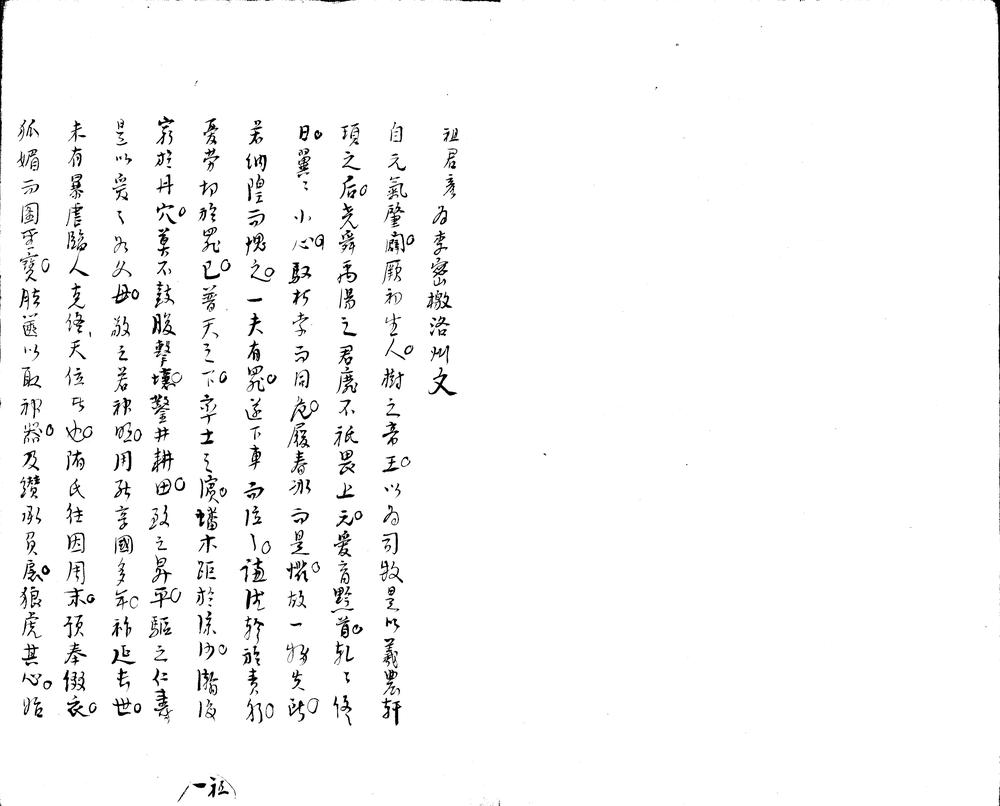 祖君彦為李密檄洛州文
自元氣肇闢。厥初生人。樹之帝王。以為司牧是以羲農軒
頊之后。尭舜禹湯之君靡不祇畏上元。愛育黔首。乹〻終
日。翼〻小心。馭朽索而同危。履春冰而是懼。故一物失所。
若納隍而愧之。一夫有罪。遂下車而泣〻。謙德軫於責躬。
憂劳切於罪已。普天之下。率土之濱。蟠木距於流沙。瀚海
窮於丹穴。莫不鼓腹擊壤。鑿井耕田。致之昇平。驅之仁壽
是以愛之如父母。敬之若神明。用能享國多年。祚延长世。
未有暴虐臨人克終天位者也。隋氏往因周末。預奉缀衣。
狐媚而圖聖寶。胠篋以取神器。及纘承負扆。狼虎其心。始
一祖